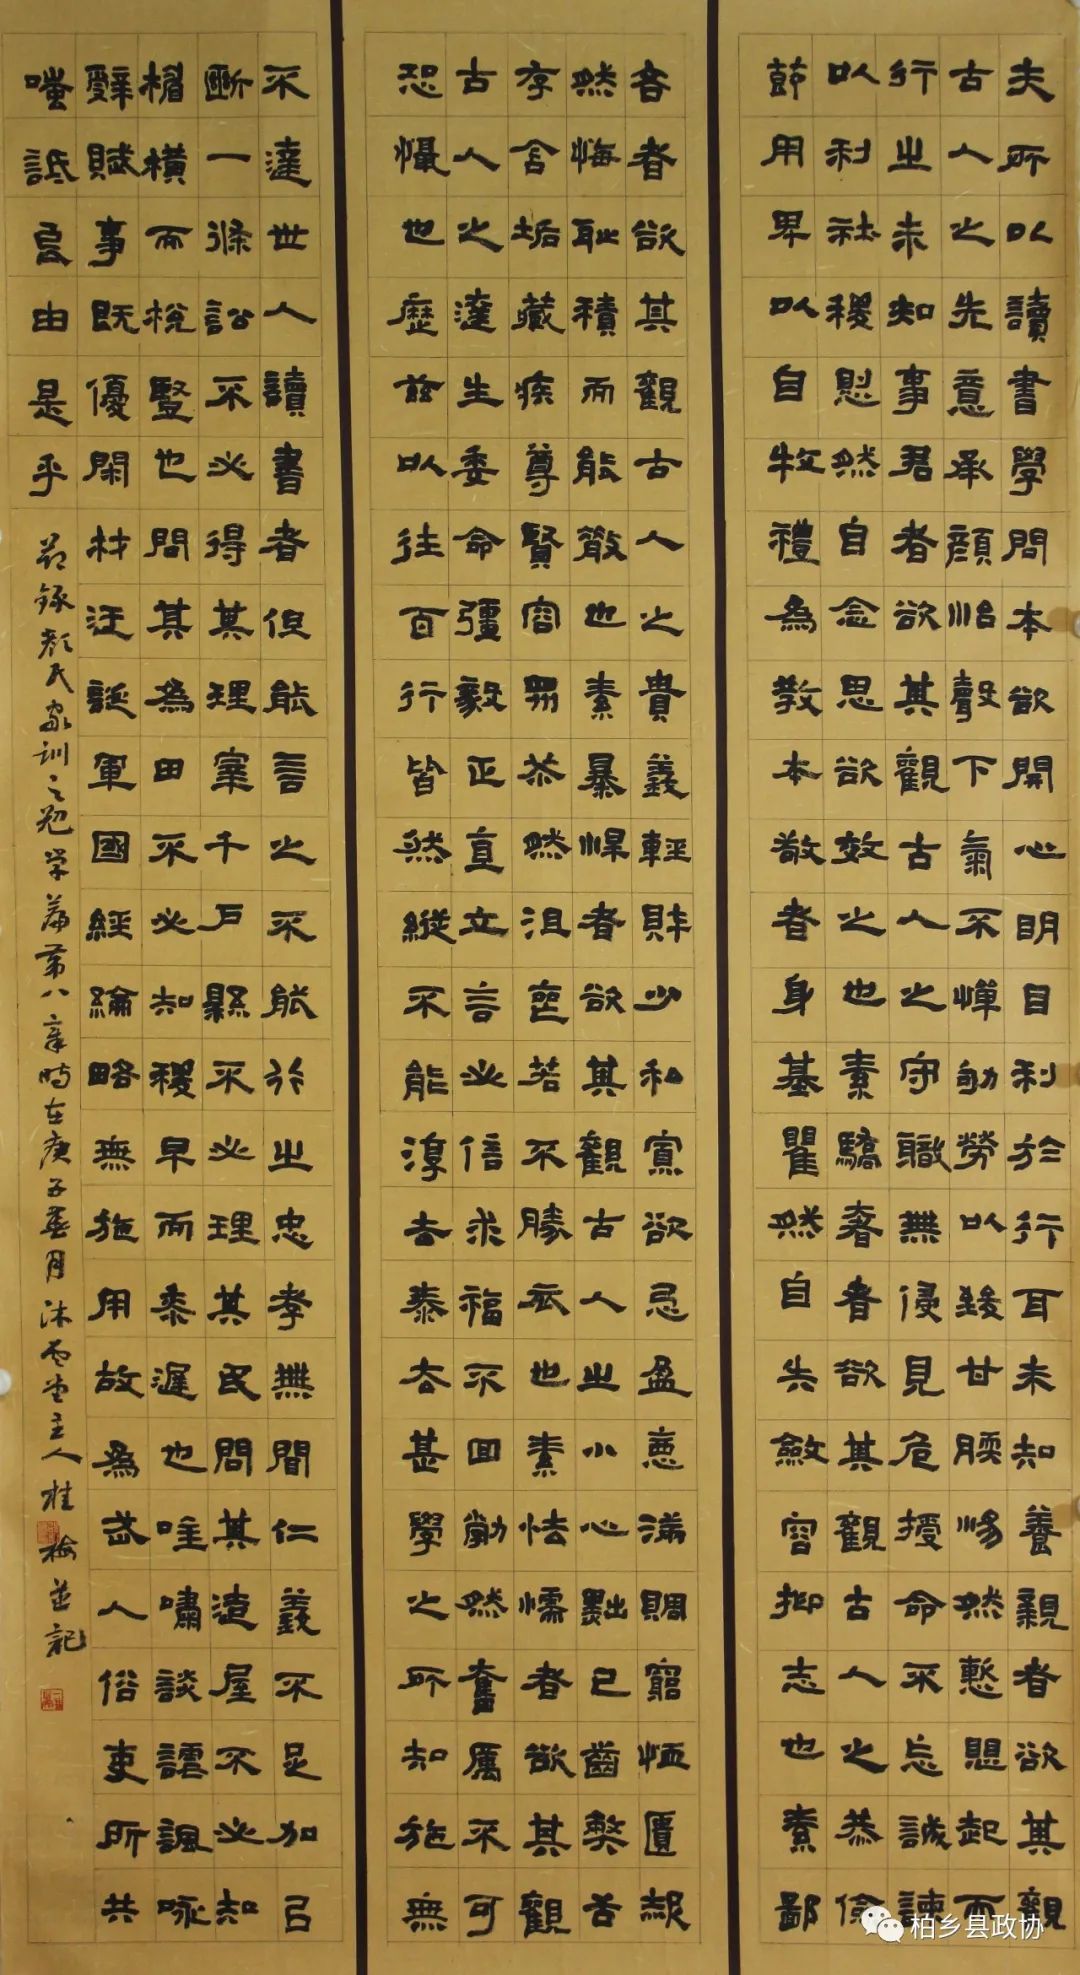 夫所以讀書學問本欲開心明目利於行耳未知養親者欲其觀
古人之先意承顏怡聲下氣不憚劬勞以致甘腝惕然慙愳起而
行之未知事君者欲其觀古人之守職無侵見危授命不忘誠諫
以利社稷惻然自念思欲效之也素驕奢者欲其觀古人之恭儉
節用卑以自牧禮為教本敬者身基瞿然自失斂容抑志也素鄙
吝者欲其觀古人之貴義輕財少私寡欲忌盈惡滿賙窮恤匱赧
然悔耻積而能散也素暴悍者欲其觀古人之小心黜己齒弊舌
存含垢藏疾尊賢容眾苶然沮喪若不勝衣也素怯懦者欲其觀
古人之達生委命彊毅正直立言必信求福不回勃然奮厲不可
恐懾也歷茲以往百行皆然縱不能淳去泰去甚學之所知施無
不達世人讀書者但能言之不能行之忠孝無聞仁義不足加以
斷一條訟不必得其理宰千戶縣不必理其民問其造屋不必知
楣橫而梲豎也問其為田不必知稷早而黍遲也唯嘯談謔諷詠
辭賦事既優閑材迂誕軍國經綸略無施用故為武人俗吏所共
嗤詆良由是乎
節錄顏氏家訓之勉學篇第八章時在庚子月沐雲堂主人桂梅並記
柏乡县政协